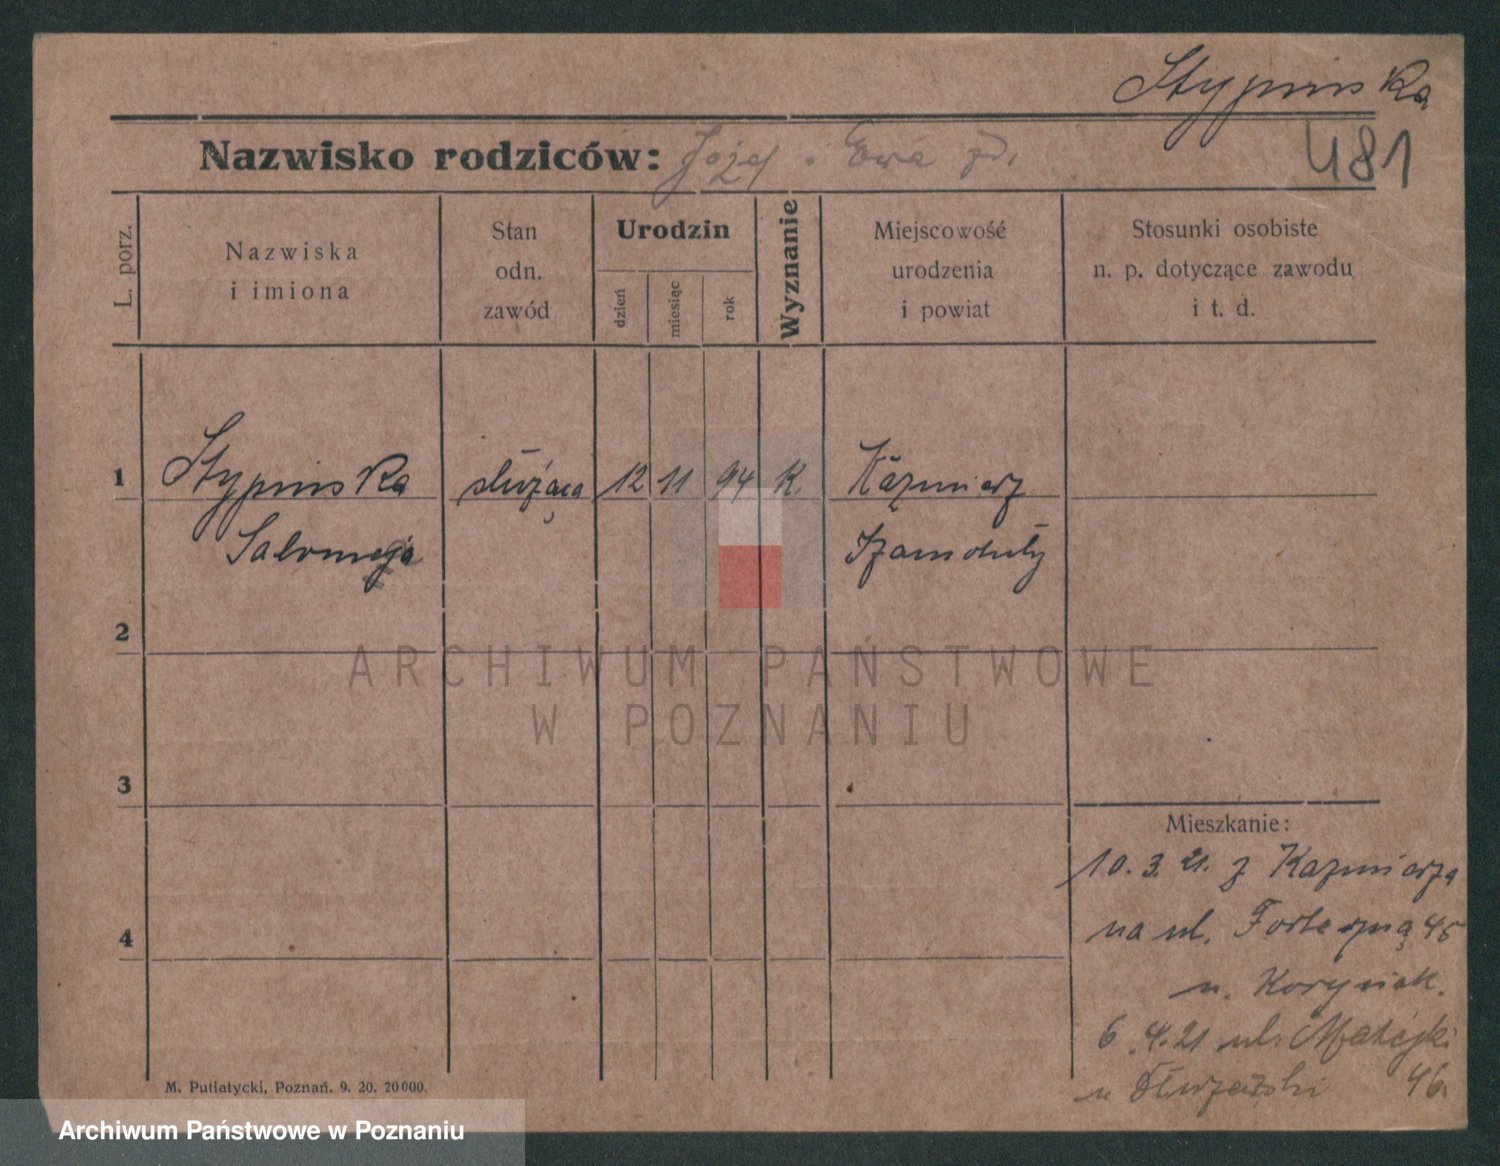 Stypinska
481
Nazwisko rodziców: Józef. Ewa zd.
L. porz.
Nazwiska
i imiona
Stan
odn.
zawód
Urodzin
dzień
miesiąc
rok
Wyznanie
Miejscowość
urodzenia
i powiat
Stosunki osobiste
n. p. dotyczące zawodu
i t. d.
1
Stypinska służąca 12 11 94 K. Kaźmierz
Salomeja Szamotuły
2
3
4
Mieszkanie:
10.3.21. z Kazmierza
na ul. Forteczną 45
u.
6.4.21 ul. Matejki
u 46.
M. Putiatycki, Poznań. 9. 20. 20000.
ARCHIWUM PAŃSTWOWE
W POZNANIU
Archiwum Państwowe w Poznaniu